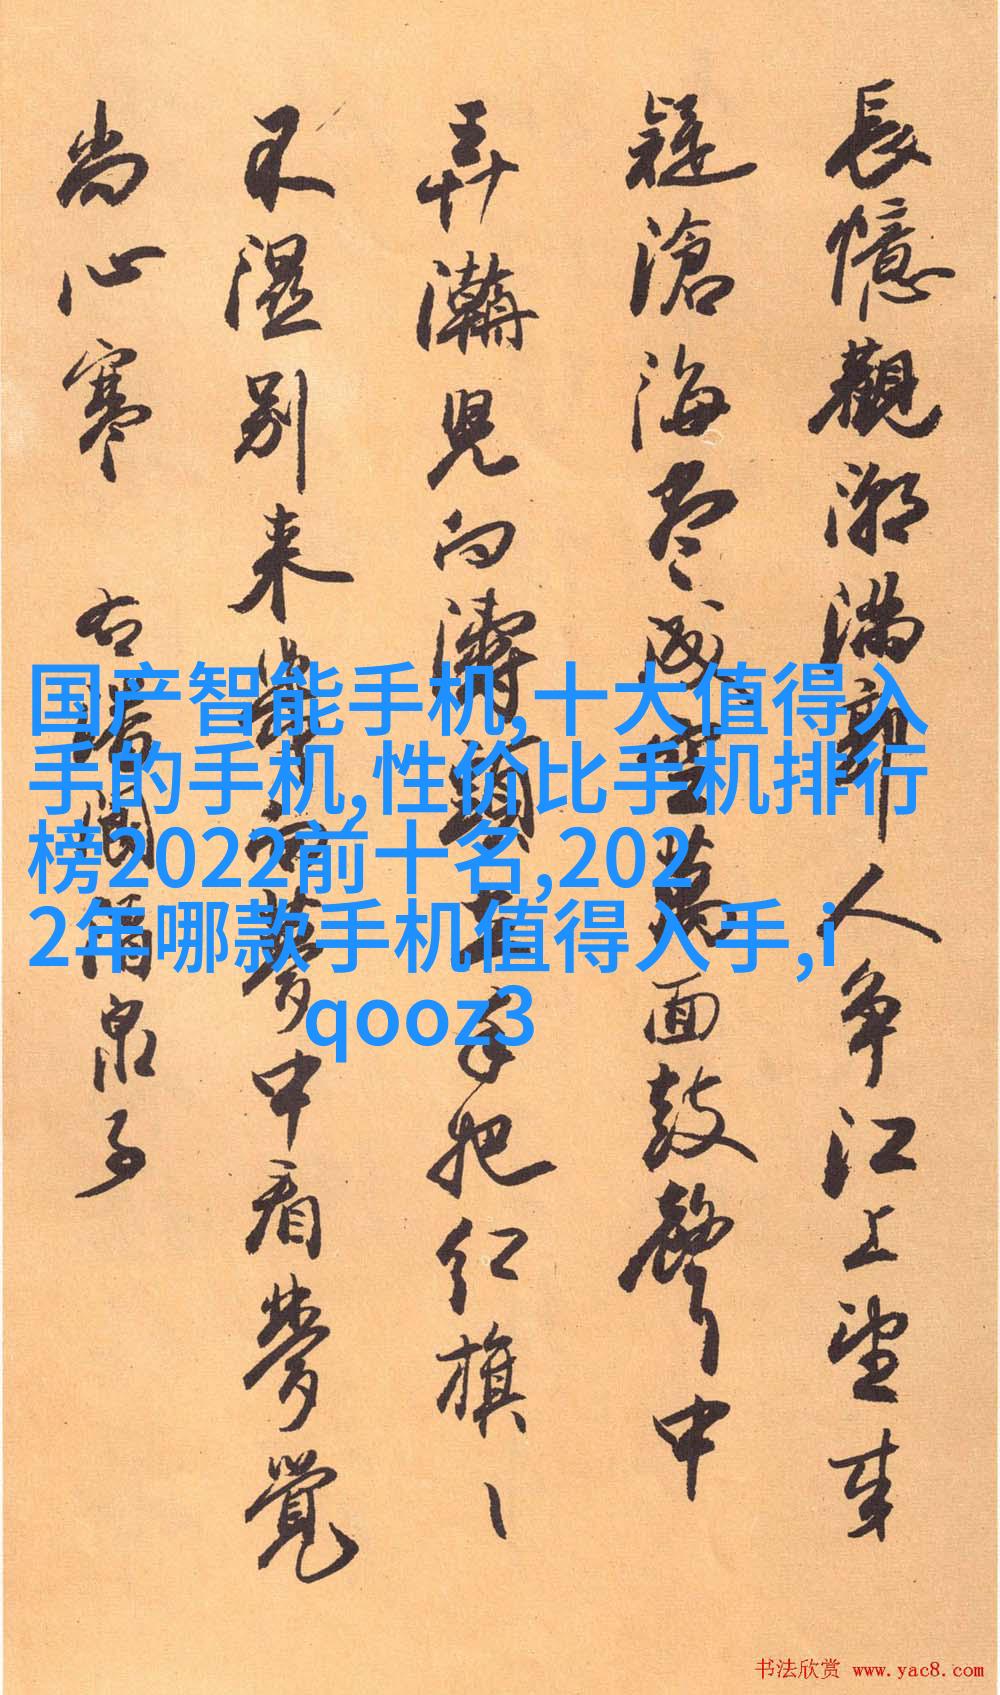 長憶觀潮滿郭人争江上望来
疑滄海尽成空萬面鼓聲中
弄潮児向濤頭立手把红旗〻
不湿别来幾向夢中看夢覺
尚心寒 右潘閬酒泉子
国产智能手机,十大值得入
手的手机,性价比手机排行
榜2022前十名,202
2年哪款手机值得入手,i
qooz3
书法欣赏 www.yac8.com